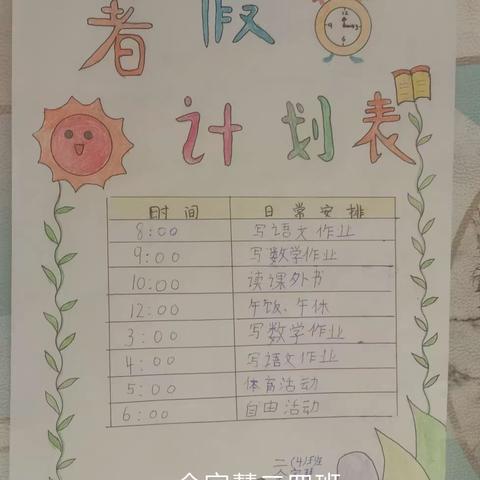 暑假
计划表
时间 日常安排
8:00 写语文作业
9:00 写数学作业
10:00 读课外书
12:00 午饭、午休
3:00 写数学作业
4:00 写语文作业
5:00 体育活动
6:00 自由活动
二(4)班
二四班